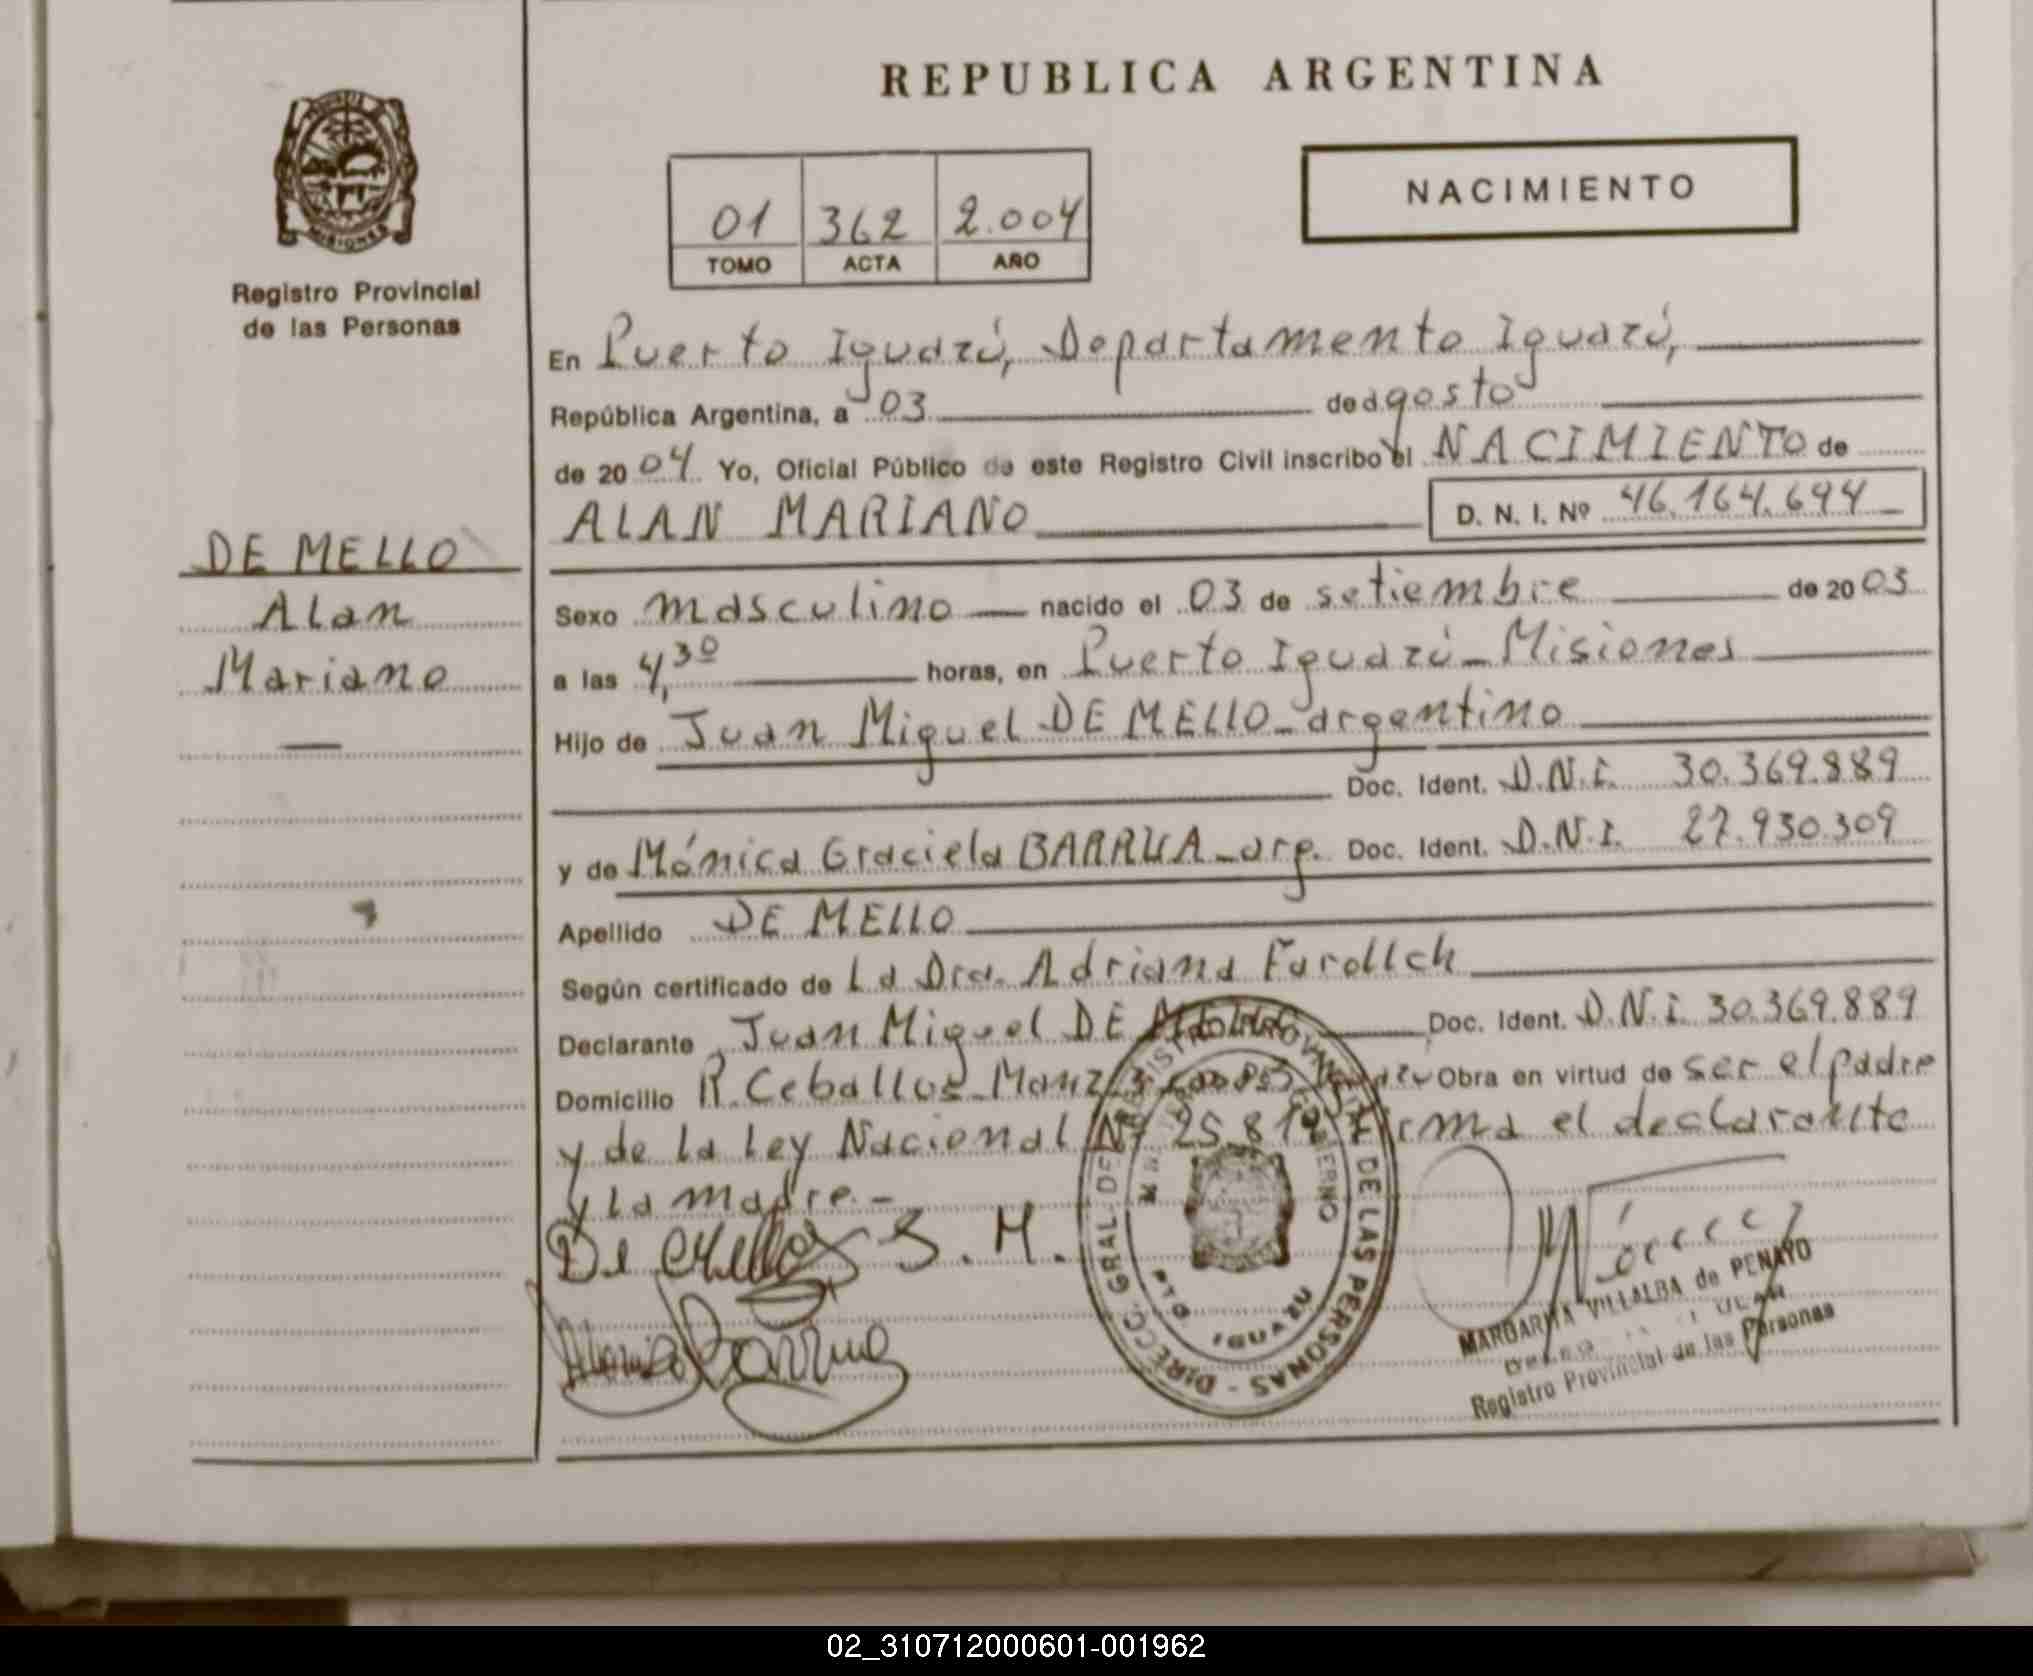 REPUBLICA ARGENTINA
NACIMIENTO
01 362 2.004
TOMO ACTA AÑO
MISIONES
Registro Provincial
de las Personas
DE MELLO
Alan
Mariano
En Puerto Iguazú, Departamento Iguazú,
República Argentina, a 03 de agosto
de 2004 Yo, Oficial Público de este Registro Civil inscribo el NACIMIENTO de
ALAN MARIANO D. N. I. Nº 46.164.694
Sexo masculino nacido el 03 de setiembre de 2003
a las 4,30 horas, en Puerto Iguazú - Misiones
Hijo de Juan Miguel DE MELLO - argentino
Doc. Ident. D.N.I. 30.369.889
y de Mónica Graciela BARRUA - arg. Doc. Ident. D.N.I. 27.930.309
Apellido DE MELLO
Según certificado de La Dra. Adriana
Declarante Juan Miguel DE MELLO Doc. Ident. D.N.I. 30.369.889
Domicilio R. Ceballos - Manz Obra en virtud de ser el padre
y de la Ley Nacional Nº 25.819 Firma el declarante
y la madre.-
De Mello J. M.
DIRECC. GRAL. DEL REGISTRO PROVINCIAL DE LAS PERSONAS
GOBIERNO
PTO. IGUAZU
MARGARITA VILLALBA de PENAYO
Registro Provincial de las Personas
02_310712000601-001962